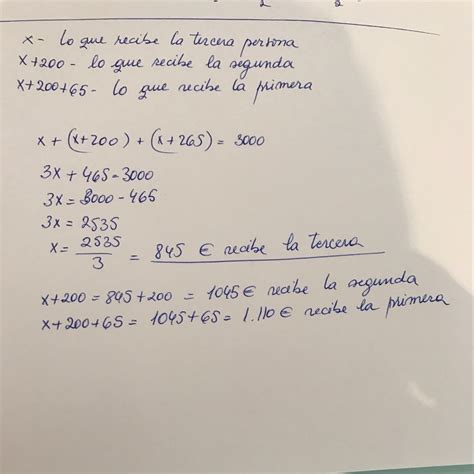 2 2
x - lo que recibe la tercera persona
x+200 - lo que recibe la segunda
x+200+65 - lo que recibe la primera
x + (x+200) + (x+265) = 3000
3x + 465 = 3000
3x = 3000 - 465
3x = 2535
x = 2535/3 = 845 € recibe la tercera
x+200 = 845+200 = 1045 € recibe la segunda
x+200+65 = 1045+65 = 1.110 € recibe la primera